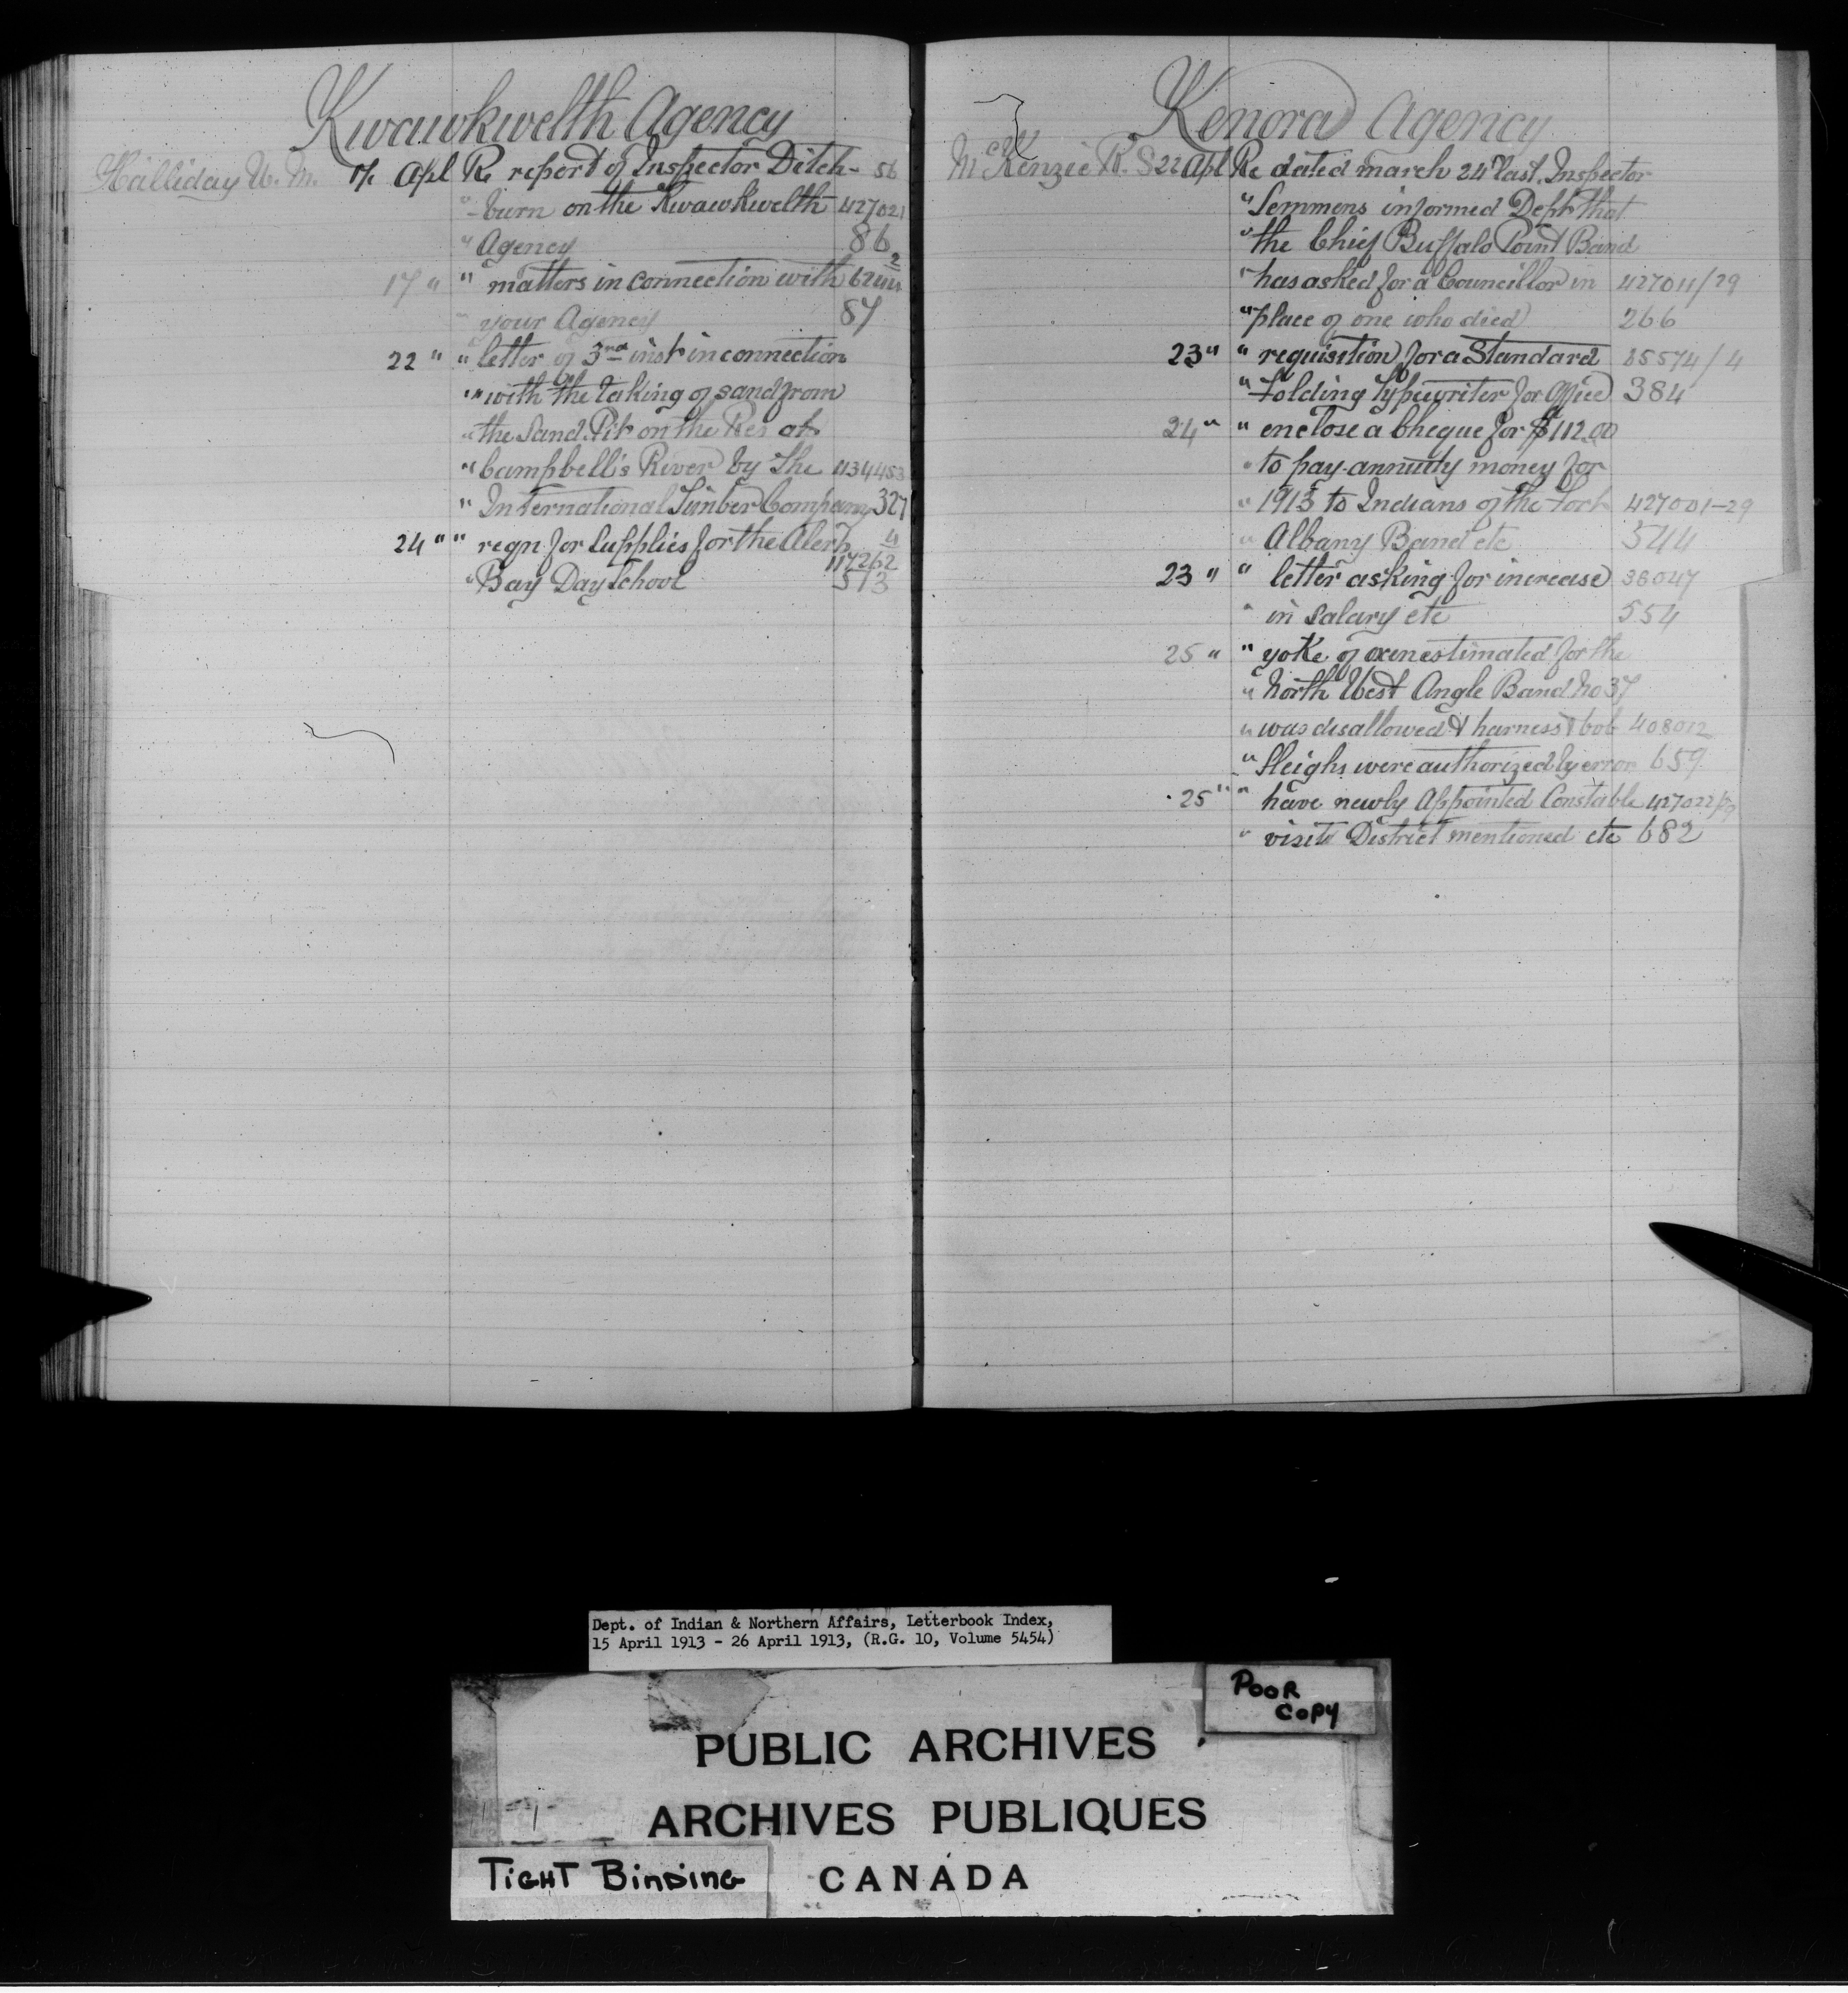 Kwawkwelth Agency
Halliday W. M. 17 Apl Re report of Inspector Ditch- 56
" -burn on the Kwawkwelth 427021
" Agency 86
17 " " matters in connection with 2
" your Agency 87
22 " " letter of 3rd inst in connection
" " with the taking of sand from
" the Sand Pit on the Res at
" Campbell's River by the 434453
" International Timber Company 327
24 " " reqn for supplies for the Alert 4
117262
" Bay Day School 513
Kenora Agency
McKenzie R. S 22 Apl Re dated march 24th last, Inspector
" Semmens informed Dept that
" the Chief Buffalo Point Band
" has asked for a Councillor in 427011/29
" place of one who died 266
23 " " requisition for a Standard 35574/4
" Folding Typewriter for Office 384
24 " " enclose a Cheque for $112.00
" to pay annuity money for
" 1913 to Indians of the Fort 427001-29
" Albany Band etc 544
23 " " letter asking for increase 38047
" in Salary etc 554
25 " " yoke of oxen estimated for the
" North West Angle Band No 37
" was disallowed & harness & bob 408012
" Sleighs were authorized by error 659
25 " " have newly Appointed Constable 427022/29
" visit District mentioned etc 682
Dept. of Indian & Northern Affairs, Letterbook Index,
15 April 1913 - 26 April 1913, (R.G. 10, Volume 5454)
POOR
COPY
PUBLIC ARCHIVES
ARCHIVES PUBLIQUES
TIGHT BINDING
CANADA